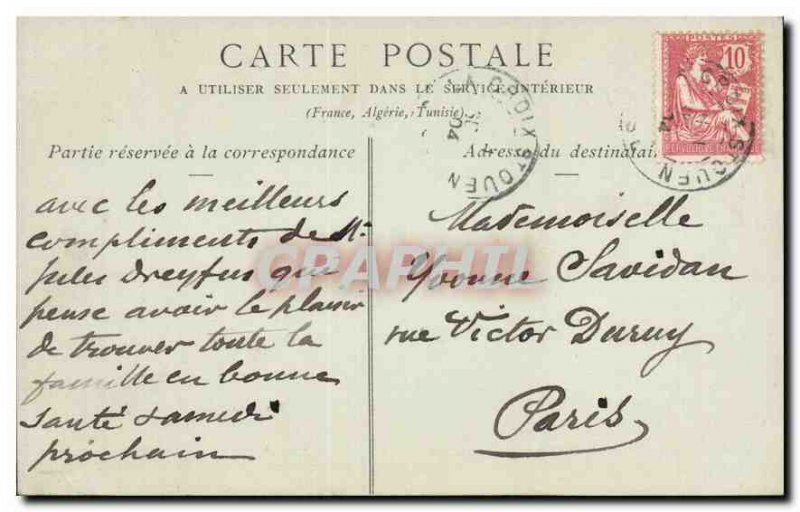 CARTE POSTALE
A UTILISER SEULEMENT DANS LE SERVICE INTÉRIEUR
(France, Algérie, Tunisie)
Partie réservée à la correspondance
Adresse du destinatai
POSTES
10
LA CROIX ST OUEN
04
CROIX ST OUEN
04
avec les meilleurs
compliments de Mr
Jules Dreyfus qui
pense avoir le plaisir
de trouver toute la
famille en bonne
santé samedi
prochain
Mademoiselle
Yvonne Savidan
rue Victor Duruy
Paris
CPAPHIL